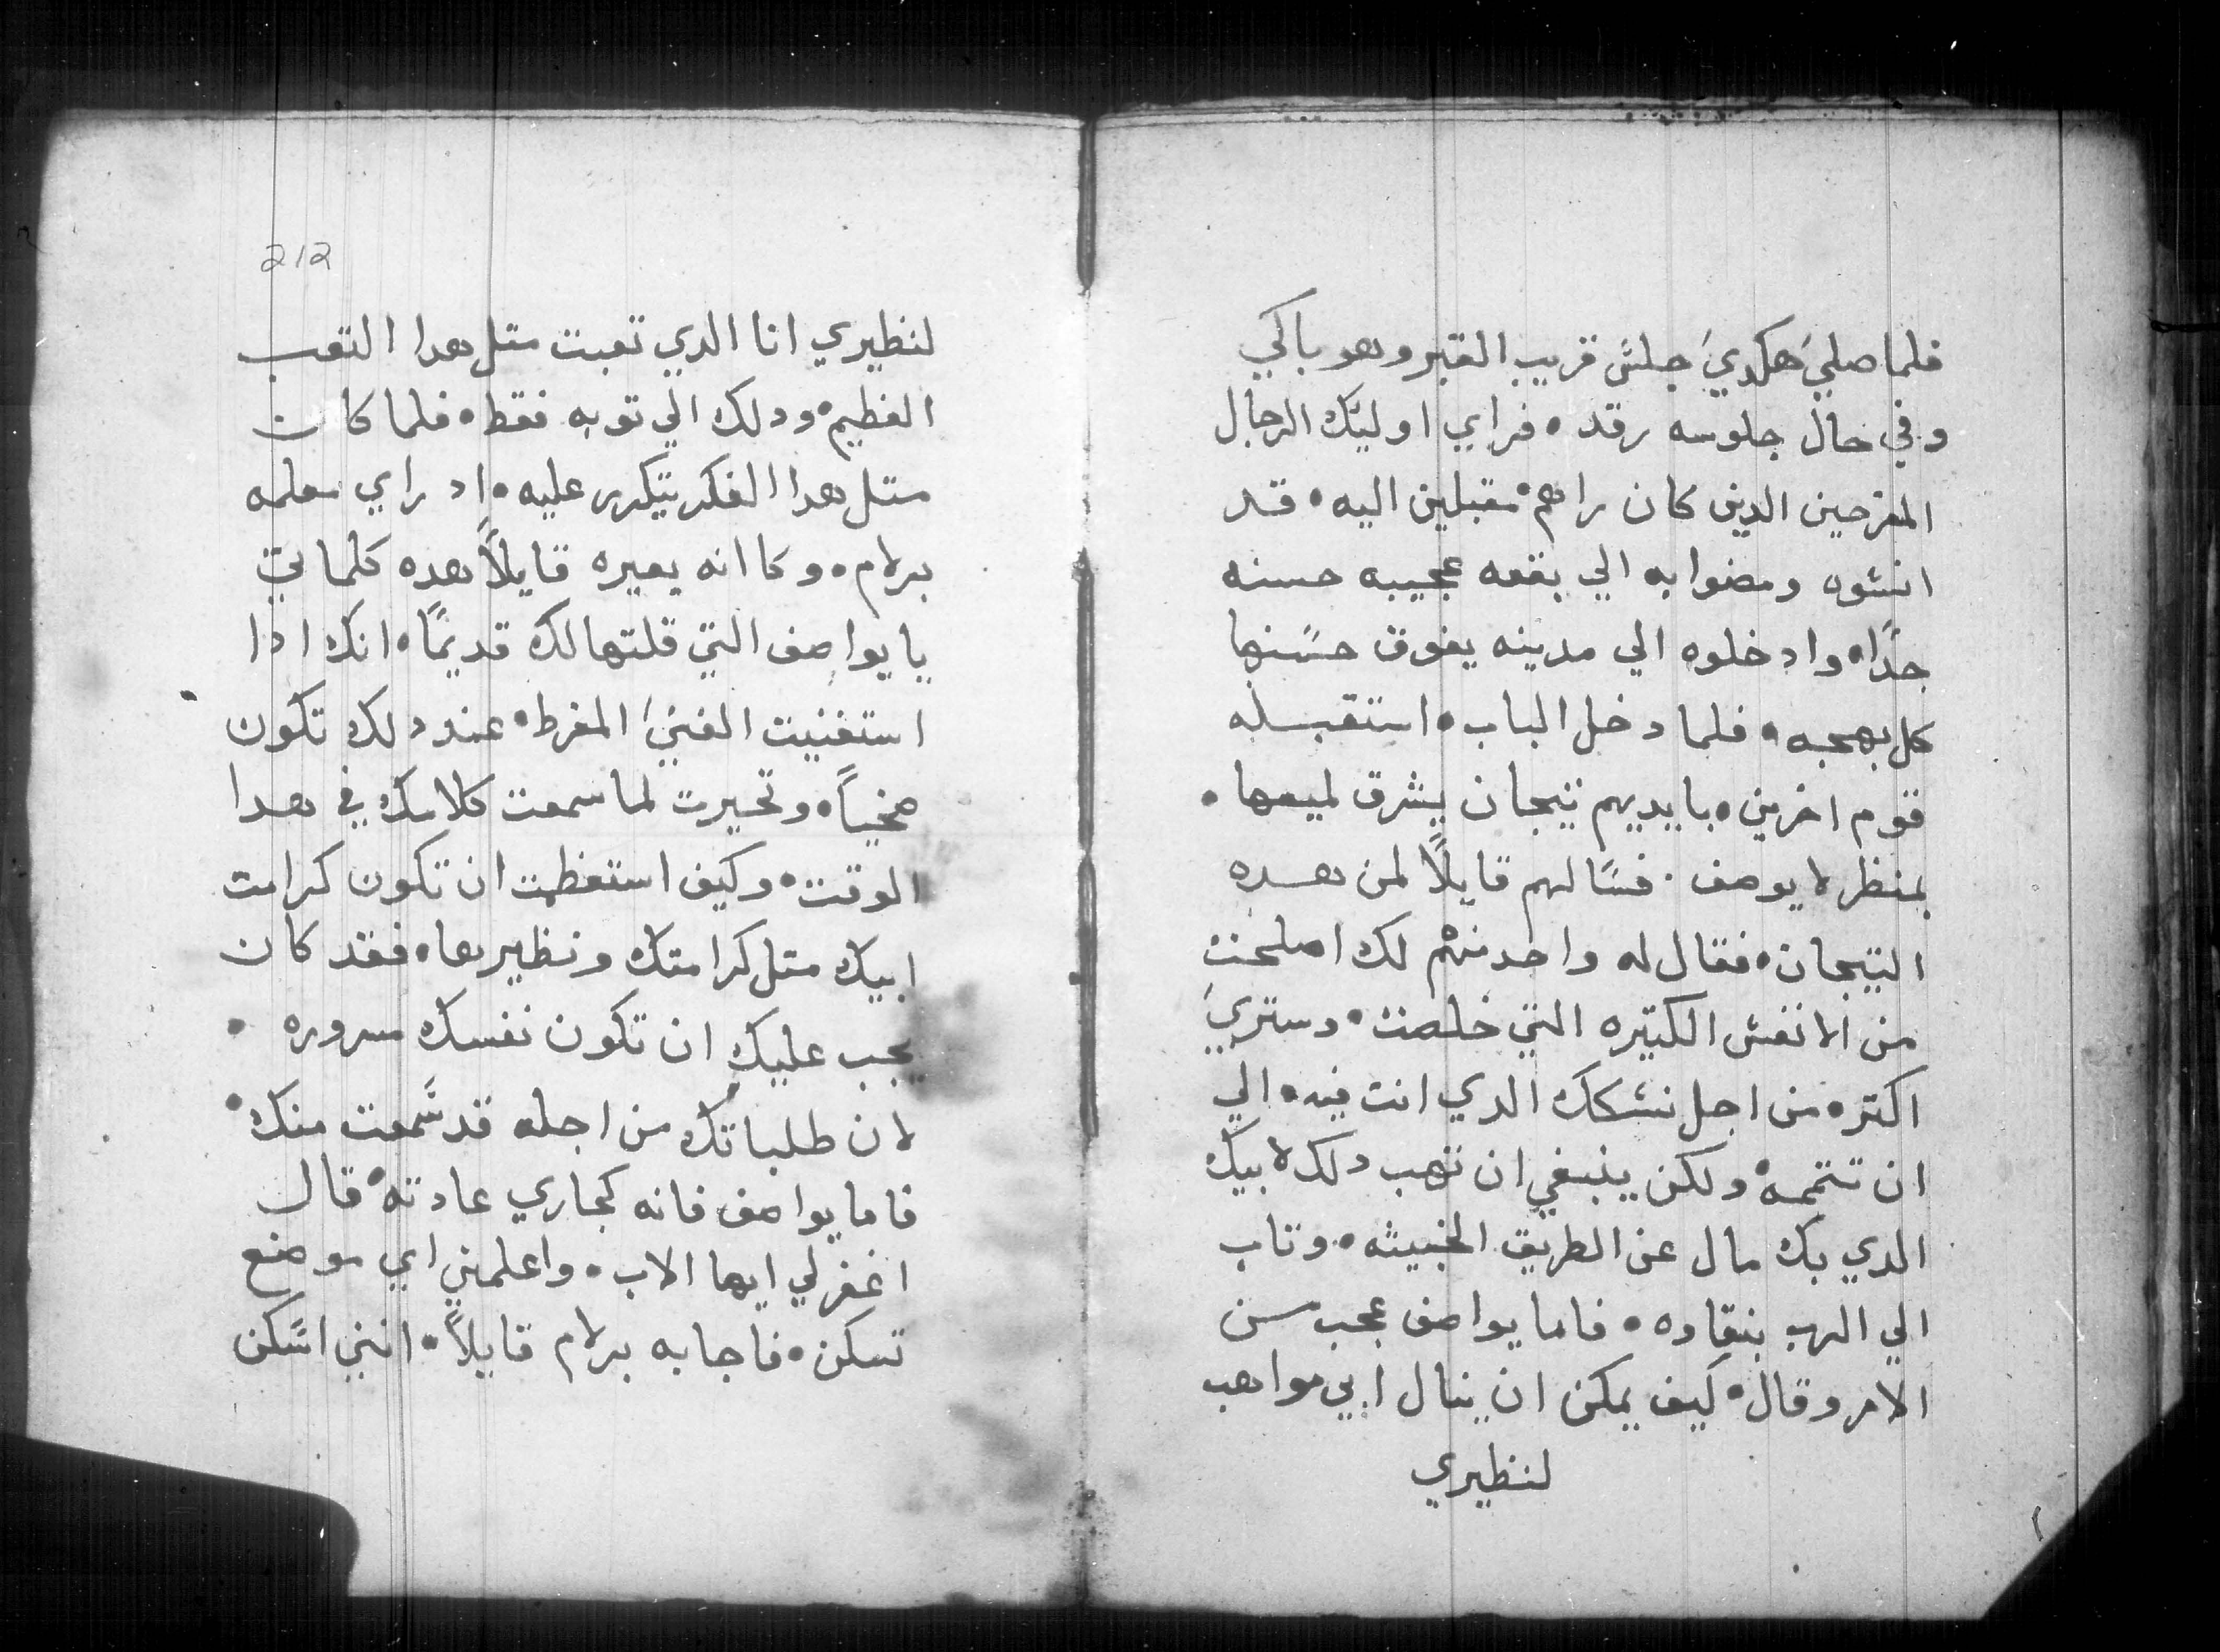 فلما صلي هكدي جلس قريب القبر وهو باكي
وفي حال جلوسه رقد ، فراي اوليك الرجال
المفزحين الدين كان راهم مقبلين اليه ، قد
انشوه ومضوا به الي بقعه عجيبه حسنه
جدًا ، وادخلوه الي مدينه يفوق حسنها
كل بهجه ، فلما دخل الباب ، استقبله
قوم اخرين ، بايديهم تيجان يشرق لميعها ،
بمنظر لا يوصف . فسالهم قايلاً لمن هده
التيجان ، فقال له واحد منهم لك اصلحت
من الانفس الكتيره التي خلصت ، وستري
اكتره من اجل نسكك الدي انت فيه ، الي
ان تتممه ، ولكن ينبغي ان تهب دلك لابيك
الدي بك مال عن الطريق الخبيثه ، وتاب
الي الرب بنقاوه ، فاما يواصف عجب من
الامر وقال ، كيف يمكن ان ينال ابي مواهب
لنظيري
212
لنظيري انا الدي تعبت متل هدا التعب
العظيم ، ودلك الي توبه فقط ، فلما كان
متل هدا الفكر يتكرر عليه ، اد راي معلمه
برلام ، وكاانه يعيره قايلاً هده كلماتي
يا يواصف التي قلتها لك قديمًا ، انك ادا
استغنيت الغني المفرط ، عند دلك تكون
صخياً ، وتحيرت لما سمعت كلامك في هدا
الوقت ، وكيف استعظمت ان تكون كرامت
ابيك متل كرامتك ونظيرها ، فقد كان
يجب عليك ان تكون نفسك مسروره ،
لان طلباتك من اجله قد سمعت منك ،
فاما يواصف فانه كجاري عادته ، قال
اغفر لي ايها الاب ، واعلمني اي موضع
تسكن ، فاجابه برلام قايلاً ، انني اسكن